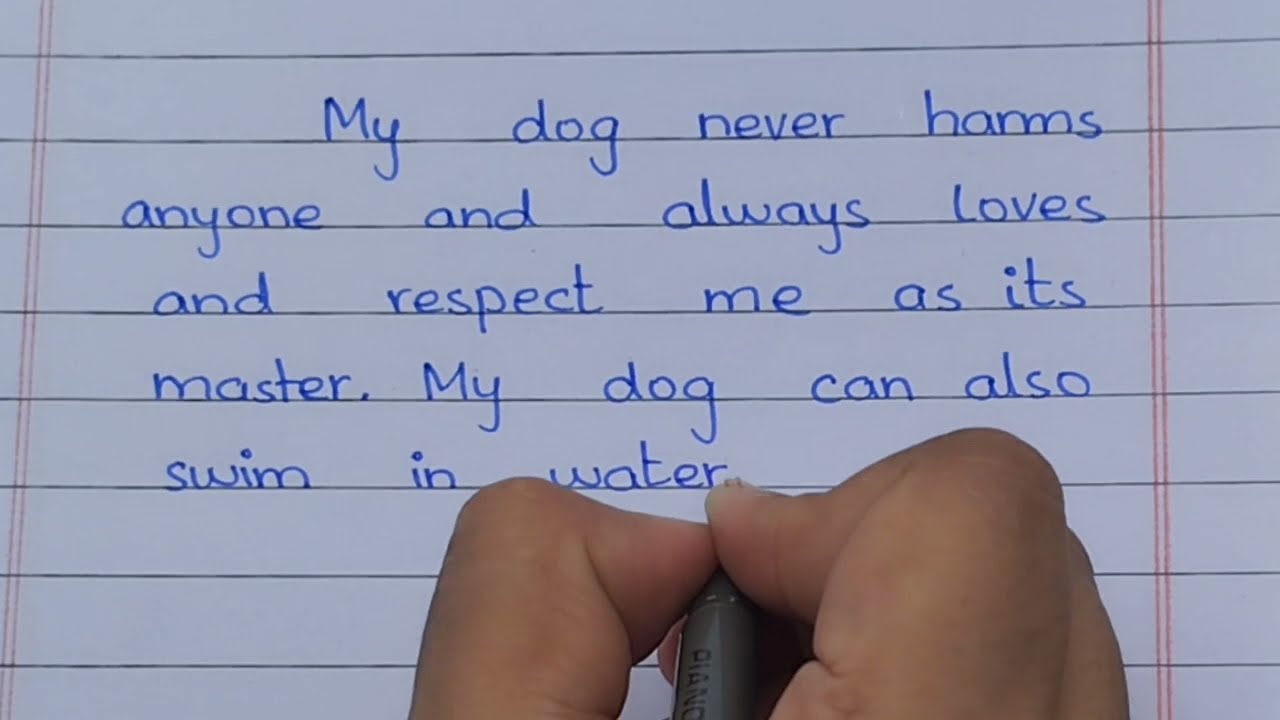 My dog never harms
anyone and always loves
and respect me as its
master. My dog can also
swim in water.